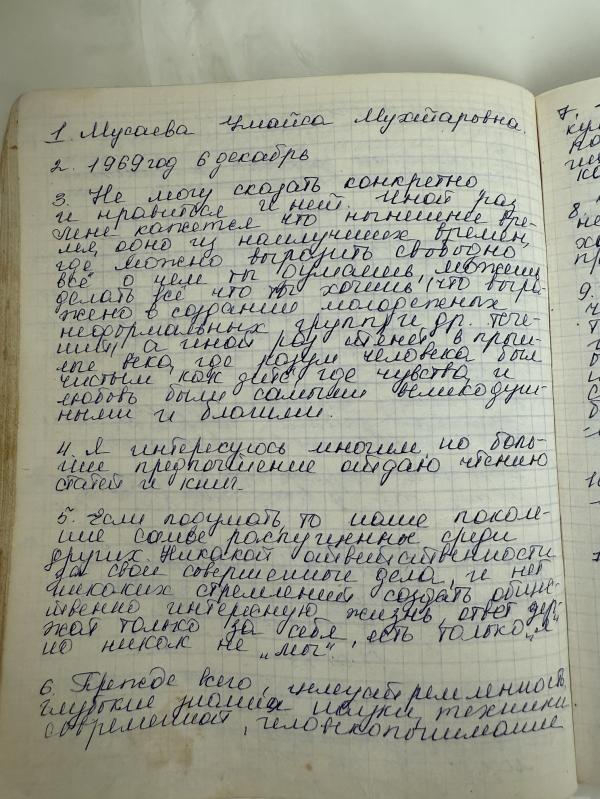 1. Мусаева Умайса Мухтаровна.
2. 1969 год 6 декабрь
3. Не могу сказать конкретно
и нравиться и нет. Иной раз
мне кажется что нынешнее вре-
мя, одно из наилучших времен,
где можно выразить свободно
всё о чем ты думаешь, можешь
делать всё что ты хочешь, (что выра-
жено в создании молодежных
неформальных групп) и др. тече-
ний, а иной раз тянет в прош-
лые века, где разум человека был
чистым как дитё, где чувства и
любовь были самыми великодуш-
ными и благими.
4. Я интересуюсь многим, но боль-
шее предпочтение отдаю чтению
статей и книг.
5. Если подумать, то наше поколе-
ние самое распущенные среди
других. Никакой ответственности
за свои совершенные дела, и нет
никаких стремлений создать общес-
твенно интересную жизнь, ответ дер-
жат только за себя, есть только „я"
но никак не „мы".
6. Прежде всего, целеустремленность,
глубокие знания науки, техники
современной, человекопонимание
7.
8.
9.